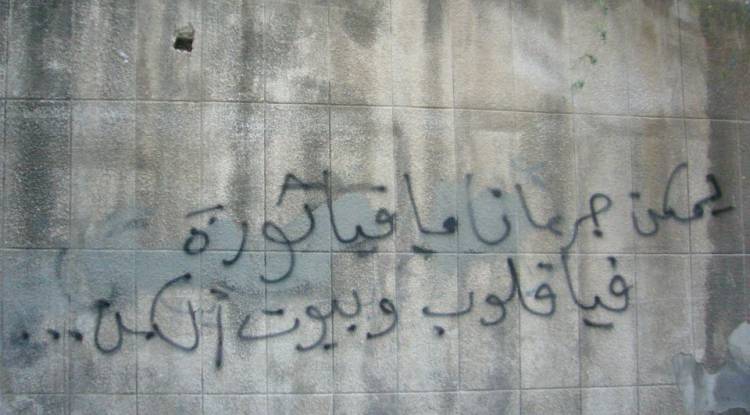 يمكن جرمانا ما فيا ثورة
فيا قلوب وبيوت الكن...